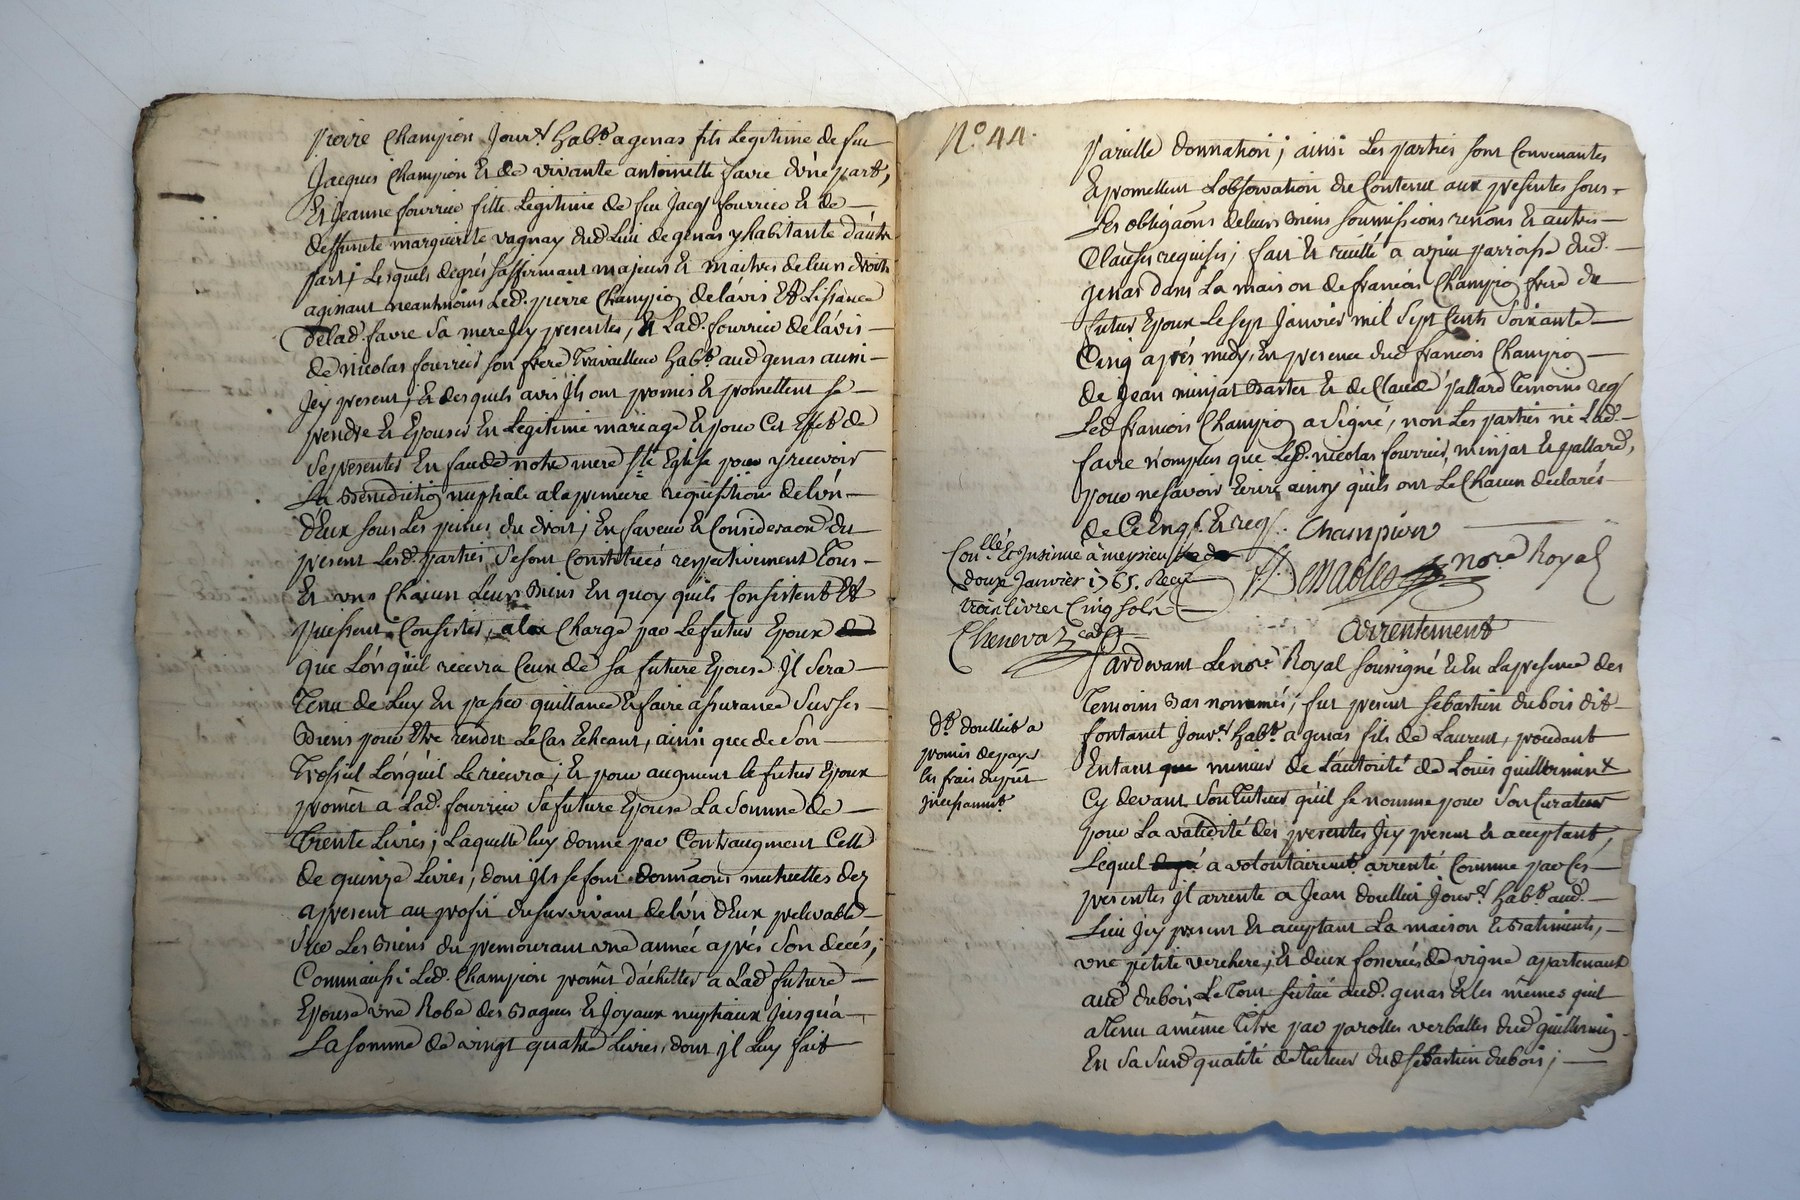 Pierre Champion Jour.r hab.t a genas fils Legitime de feu
Jacques Champion Et de vivante antoinette favre d'une part,
Et Jeanne fourrier fille Legitime de feu Jacq.s fourrier Et de
deffunte marguerite vagnay dud. Lieu de genas y habitante d'autre
part; Lesquels degrés s'affirmant majeurs Et maitres de leurs droits
agissant neantmoins Led. pierre Champion de l'avis Et Lissance
de lad. favre sa mere Jcy presente, Et Lad. fourrier de l'avis
de nicolas fourrier son frere Travailleur hab.t aud. genas aussi
Jcy present, Et desquels avis Jls ont promis Et promettent se
prendre Et Epouser En Legitime mariage Et pour Cet Effet de
se presenter En face de notre mere S.te Eglise pour y recevoir
La Benediction nuptiale a la premiere requisition de l'un
d'Eux sous Les peines du droit; En faveur Et Consideraon du
present Lesd. parties se sont Constitués respectivement Tous
Et uns Chacun Leurs Biens En quoy qu'ils Consistent Et
puissent Consister, a la Charge par Le futur Epoux
que Lorsqu'il recevra Ceux de sa future Epouse Jl sera
Tenu de Luy En passer quittance Et faire assurance sur ses
Biens pour Etre rendu Le Cas Echeant, ainsi que de son
Trossel Lorsqu'il Le recevra; Et pour augment le futur Epoux
promet a Lad. fourrier sa future Epouse La somme de
Trente Livres; Laquelle luy donne par Contraugment Celle
de quinze Livres, dont Jls se font donnaons mutuelles dez
a present au profit du survivant de l'un d'Eux prelevable
sur Les Biens du premourant une année après son decés;
Comm'aussi Led. Champion promet d'achetter a Lad. future
Epouse une Robe des Bagues Et Joyaux nuptiaux Jusqu'a
La somme de vingt quatre Livres, dont Jl Luy fait
N.o 44.
pareille donnation; ainsi Les parties sont Convenantes
Et promettent L'observation du Contenu aux presentes sous
Les obligaons de leurs Biens soumissions renons Et autres
Clauses requises; fait Et recité a azieu parroisse dud.
genas dans La maison de francois Champion frere du
futur Epoux Le sept Janvier mil sept Cents soixante
Cinq après midy, En presence dud. francois Champion
de Jean minjat Et de Claude pallard Temoins req.s
Led. francois Champion a signé, non Les parties ni Lad.
favre n'omplus que Led. nicolas fourrier, minjat Et pallard,
pour ne savoir Ecrire ainsy qu'ils ont Le Chacun declarés
de Ce Enq.s Et req.s Champion
Desvables no.re Royal
Con.llé Et Insinué à meysieu
douze Janvier 1765. Reçu
trois livres Cinq sols
Chenevaz
arrentement
Pardevant Le no.re Royal soussigné Et En La presence des
Temoins Bas nommés; fut present sebastien dubois dit
fontanet Jour.r hab.t a genas fils de Laurent, procedant
Entant que mineur de L'autorité de Louis guillermin
Cy devant son Tuteur qu'il se nomme pour son Curateur
pour La validité des presentes Jcy present Et acceptant,
Lequel a volontairement arrenté Comme par Ces
presentes Jl arrente a Jean doullier Jour.r hab.t aud.
Lieu Jcy present Et acceptant La maison Et Batiments,
une petite verchere, Et deux fosserées de vigne apartenant
aud. dubois Le Tout situé aud. genas Et les mêmes qu'il
a Tenu a même Titre par parolles verballes dud. guillermin
En sa susd. qualité de Tuteur dud. sebastien dubois;
d.t doullier a
promis de payer
les frais du prêt